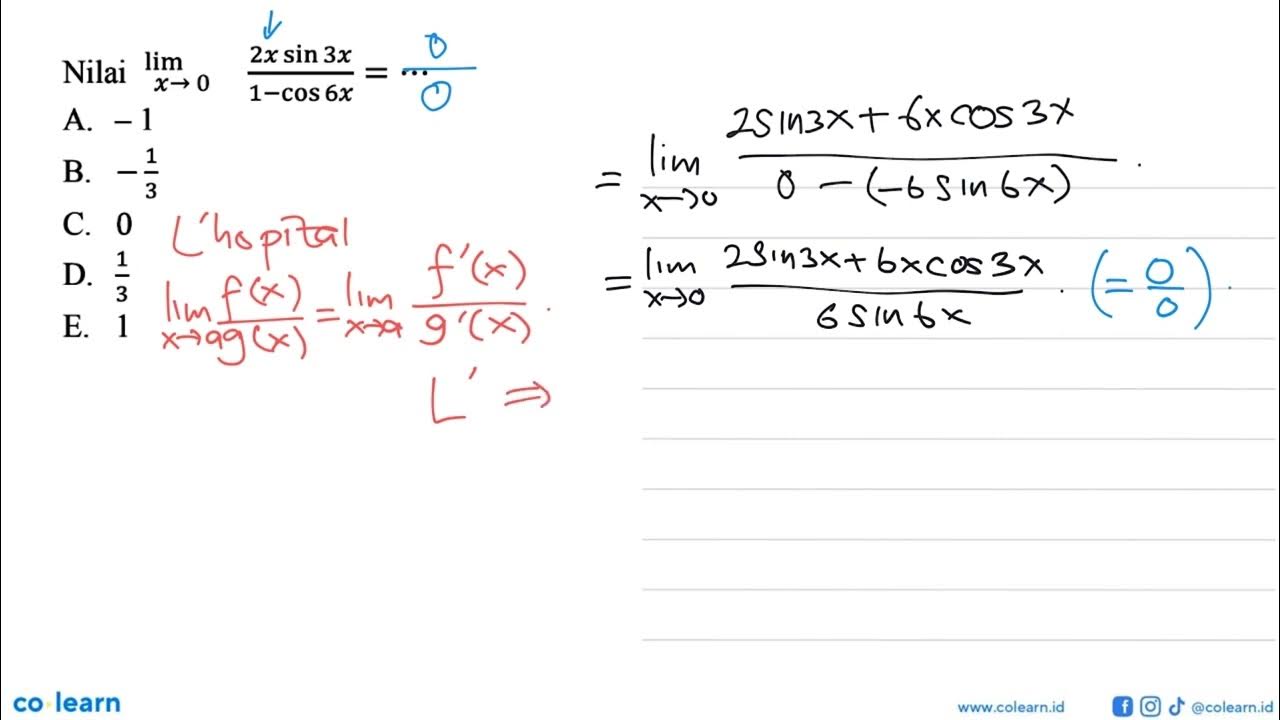 Nilai lim x→0 2x sin 3x / 1−cos 6x = ... 0/0
A. −1
B. −1/3
C. 0
D. 1/3
E. 1
L'hopital
lim x→a f(x)/g(x) = lim x→a f'(x)/g'(x) .
L' ⇒
= lim x→0 2sin3x + 6x cos3x / 0 − (−6 sin 6x) .
= lim x→0 2sin3x + 6x cos3x / 6 sin 6x . (= 0/0) .
co learn
www.colearn.id @colearn.id